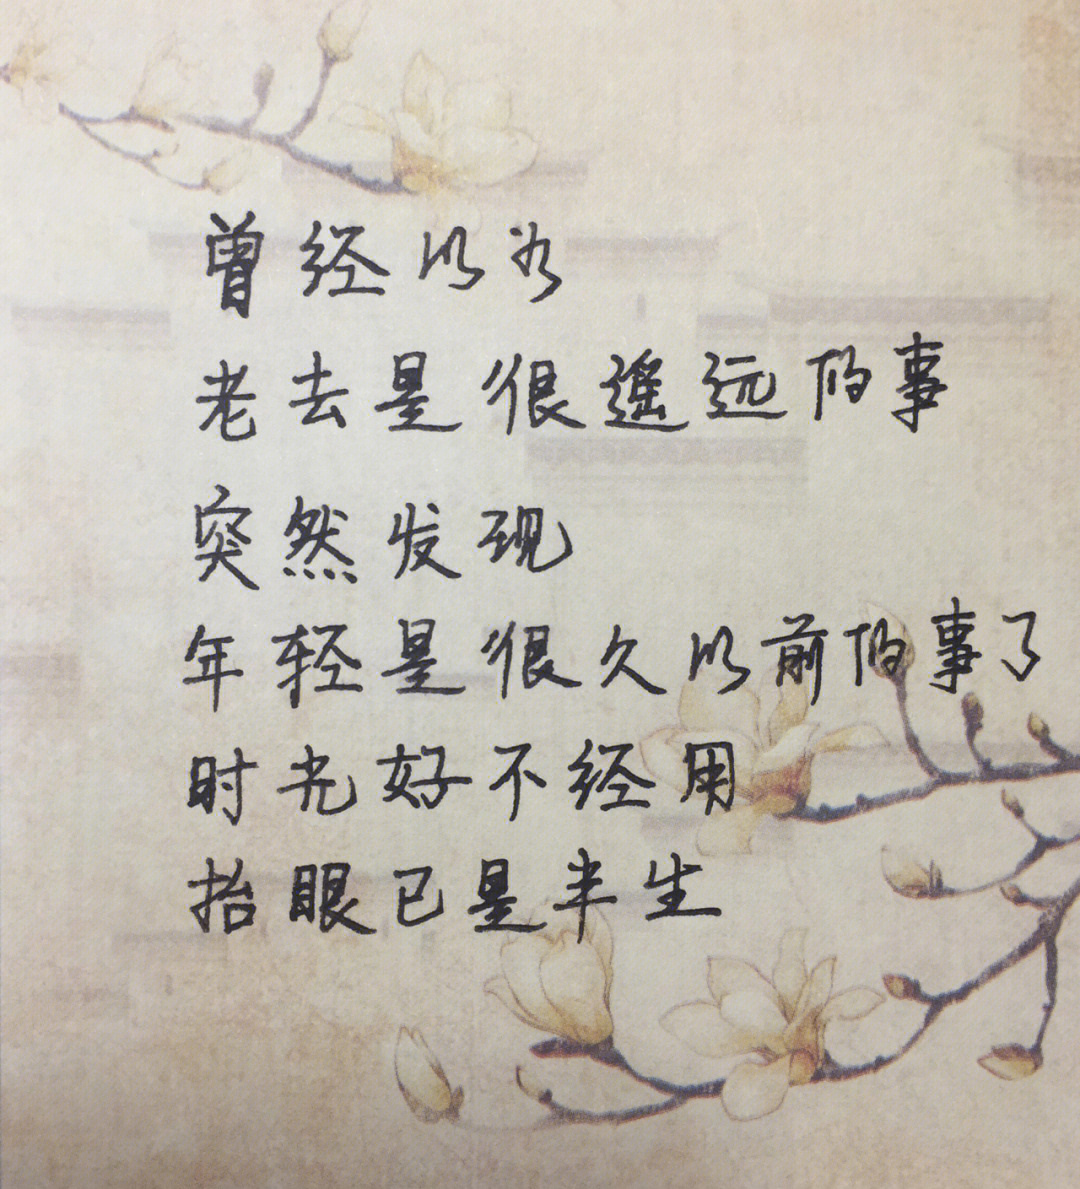 曾经以为
老去是很遥远的事
突然发现
年轻是很久以前的事了
时光好不经用
抬眼已是半生